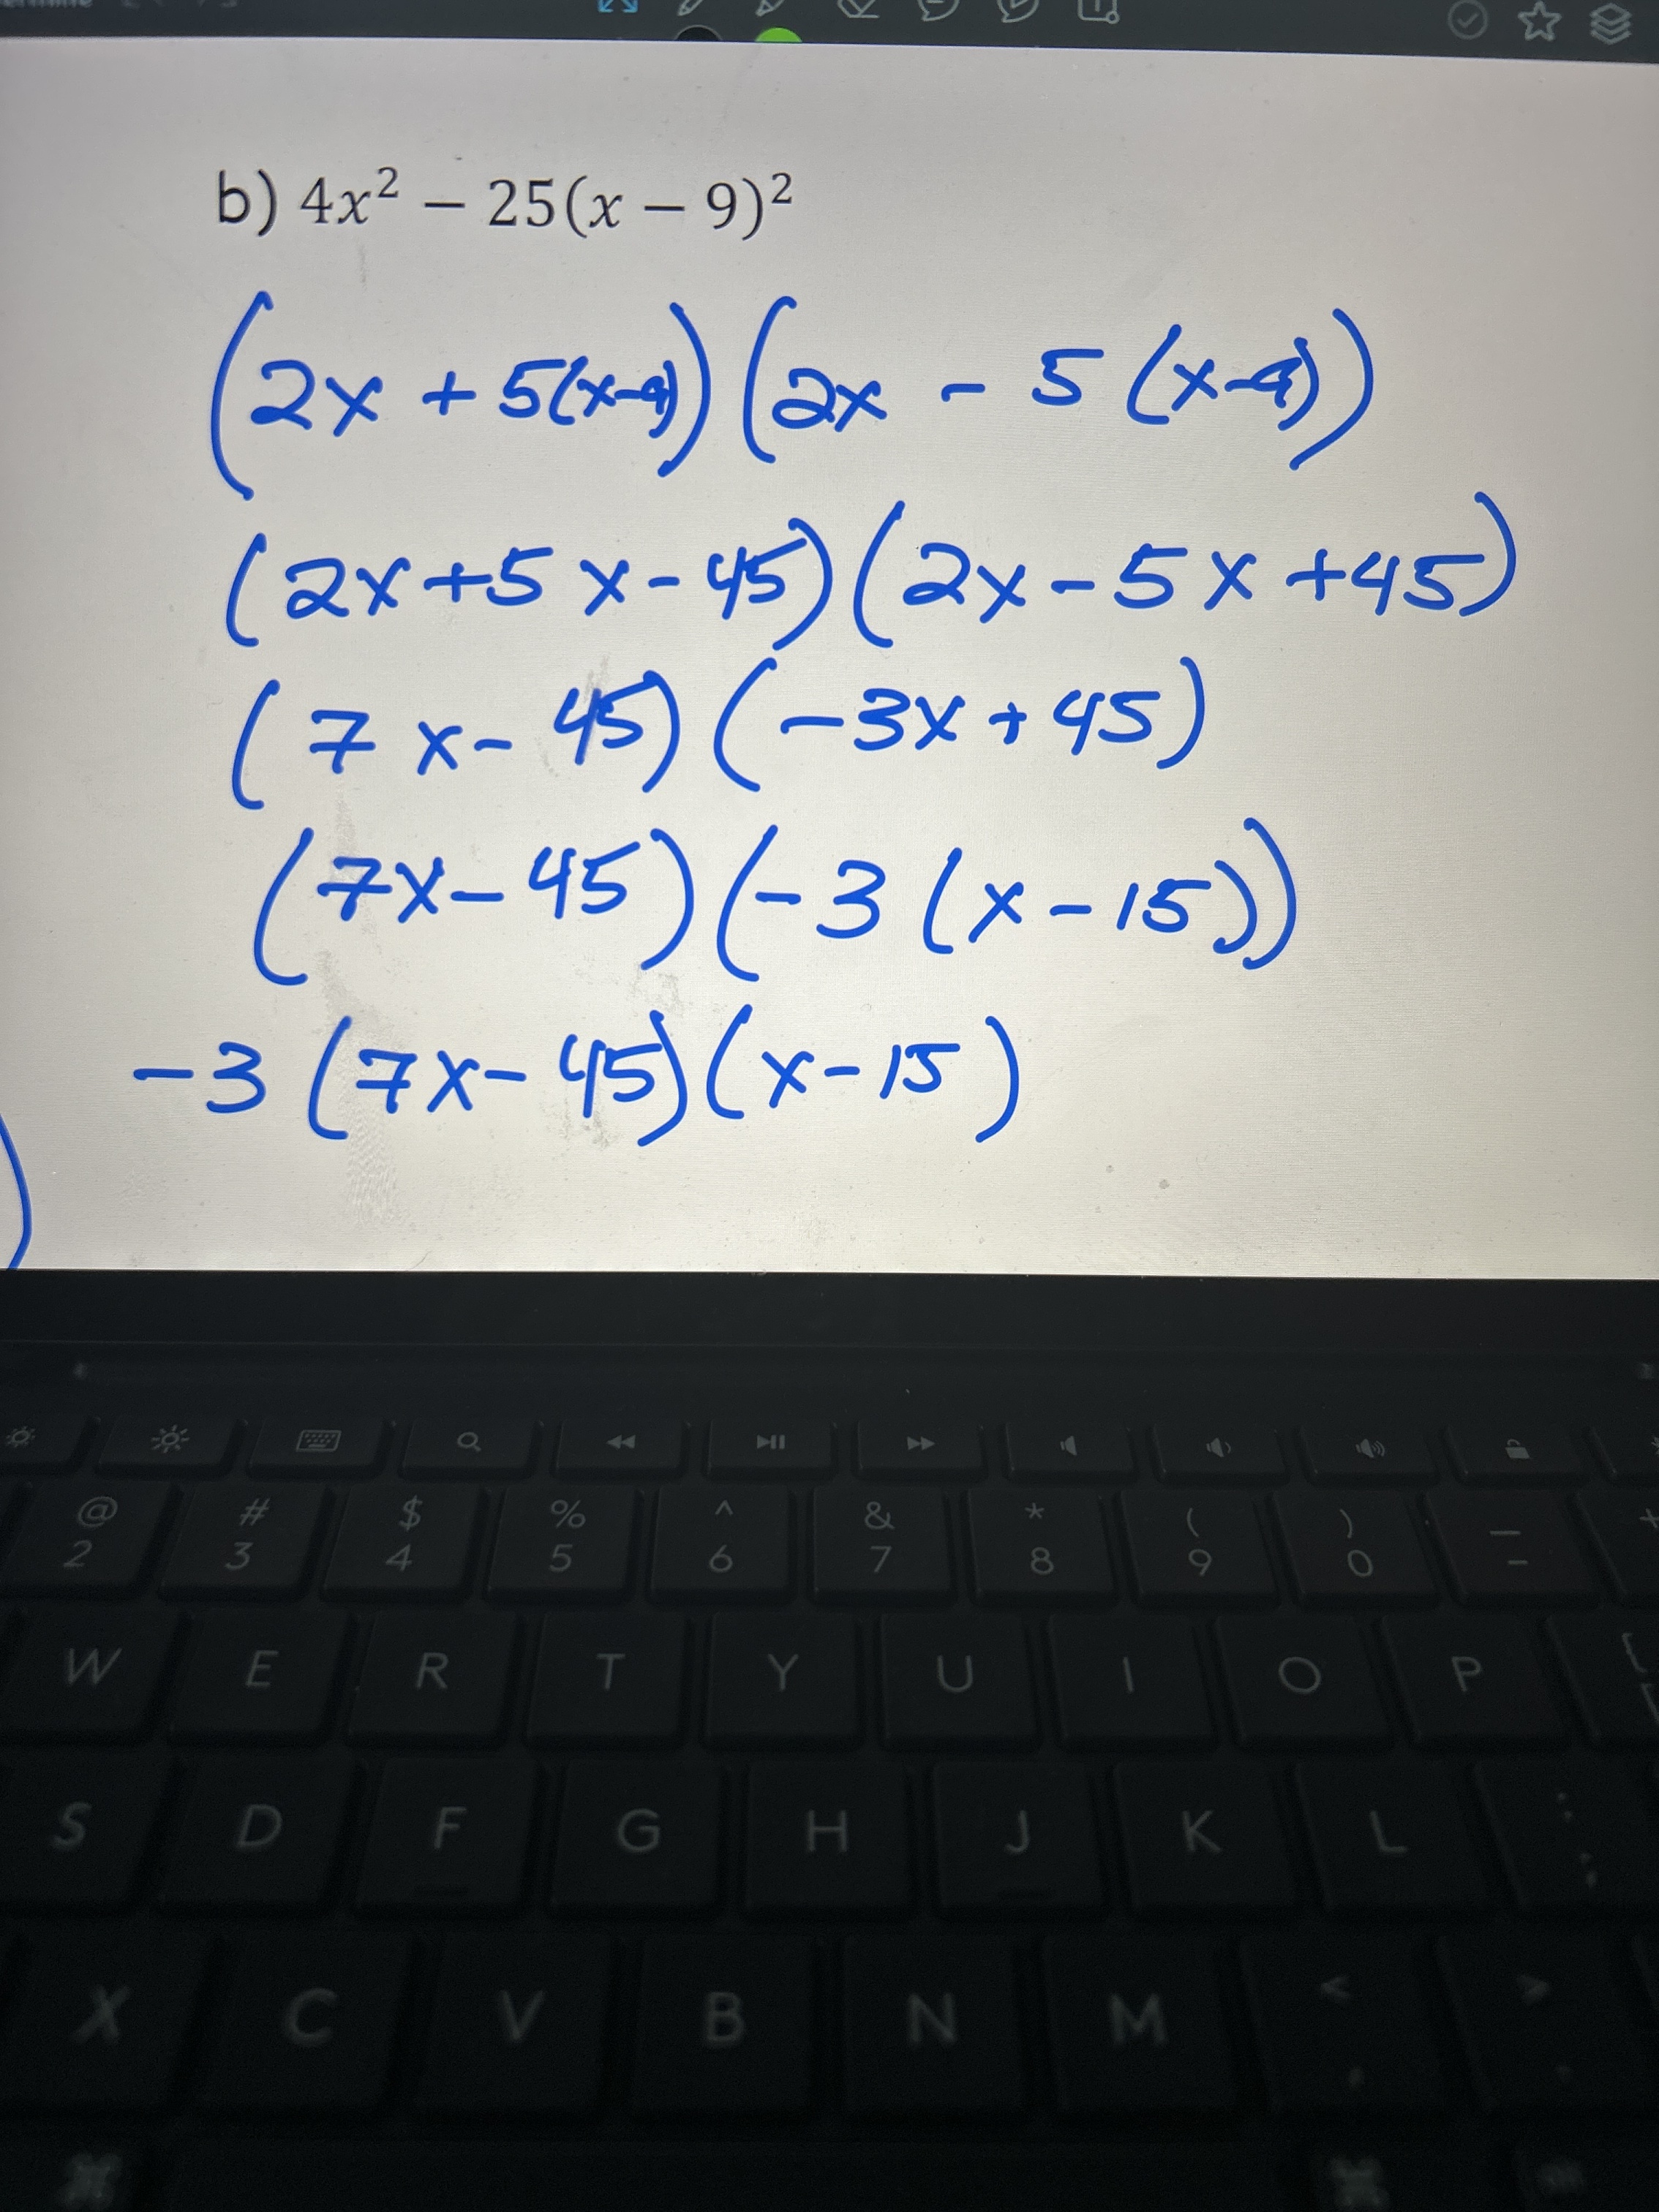 b) 4x² − 25(x − 9)²
(2x + 5(x-9))(2x - 5(x-9))
(2x+5x-45)(2x-5x+45)
(7x-45)(-3x+45)
(7x-45)(-3(x-15))
-3(7x-45)(x-15)
@ # $ % ^ & * ( ) —
2 3 4 5 6 7 8 9 0 -
W E R T Y U I O P
S D F G H J K L
X C V B N M < >
⌘ ⌘